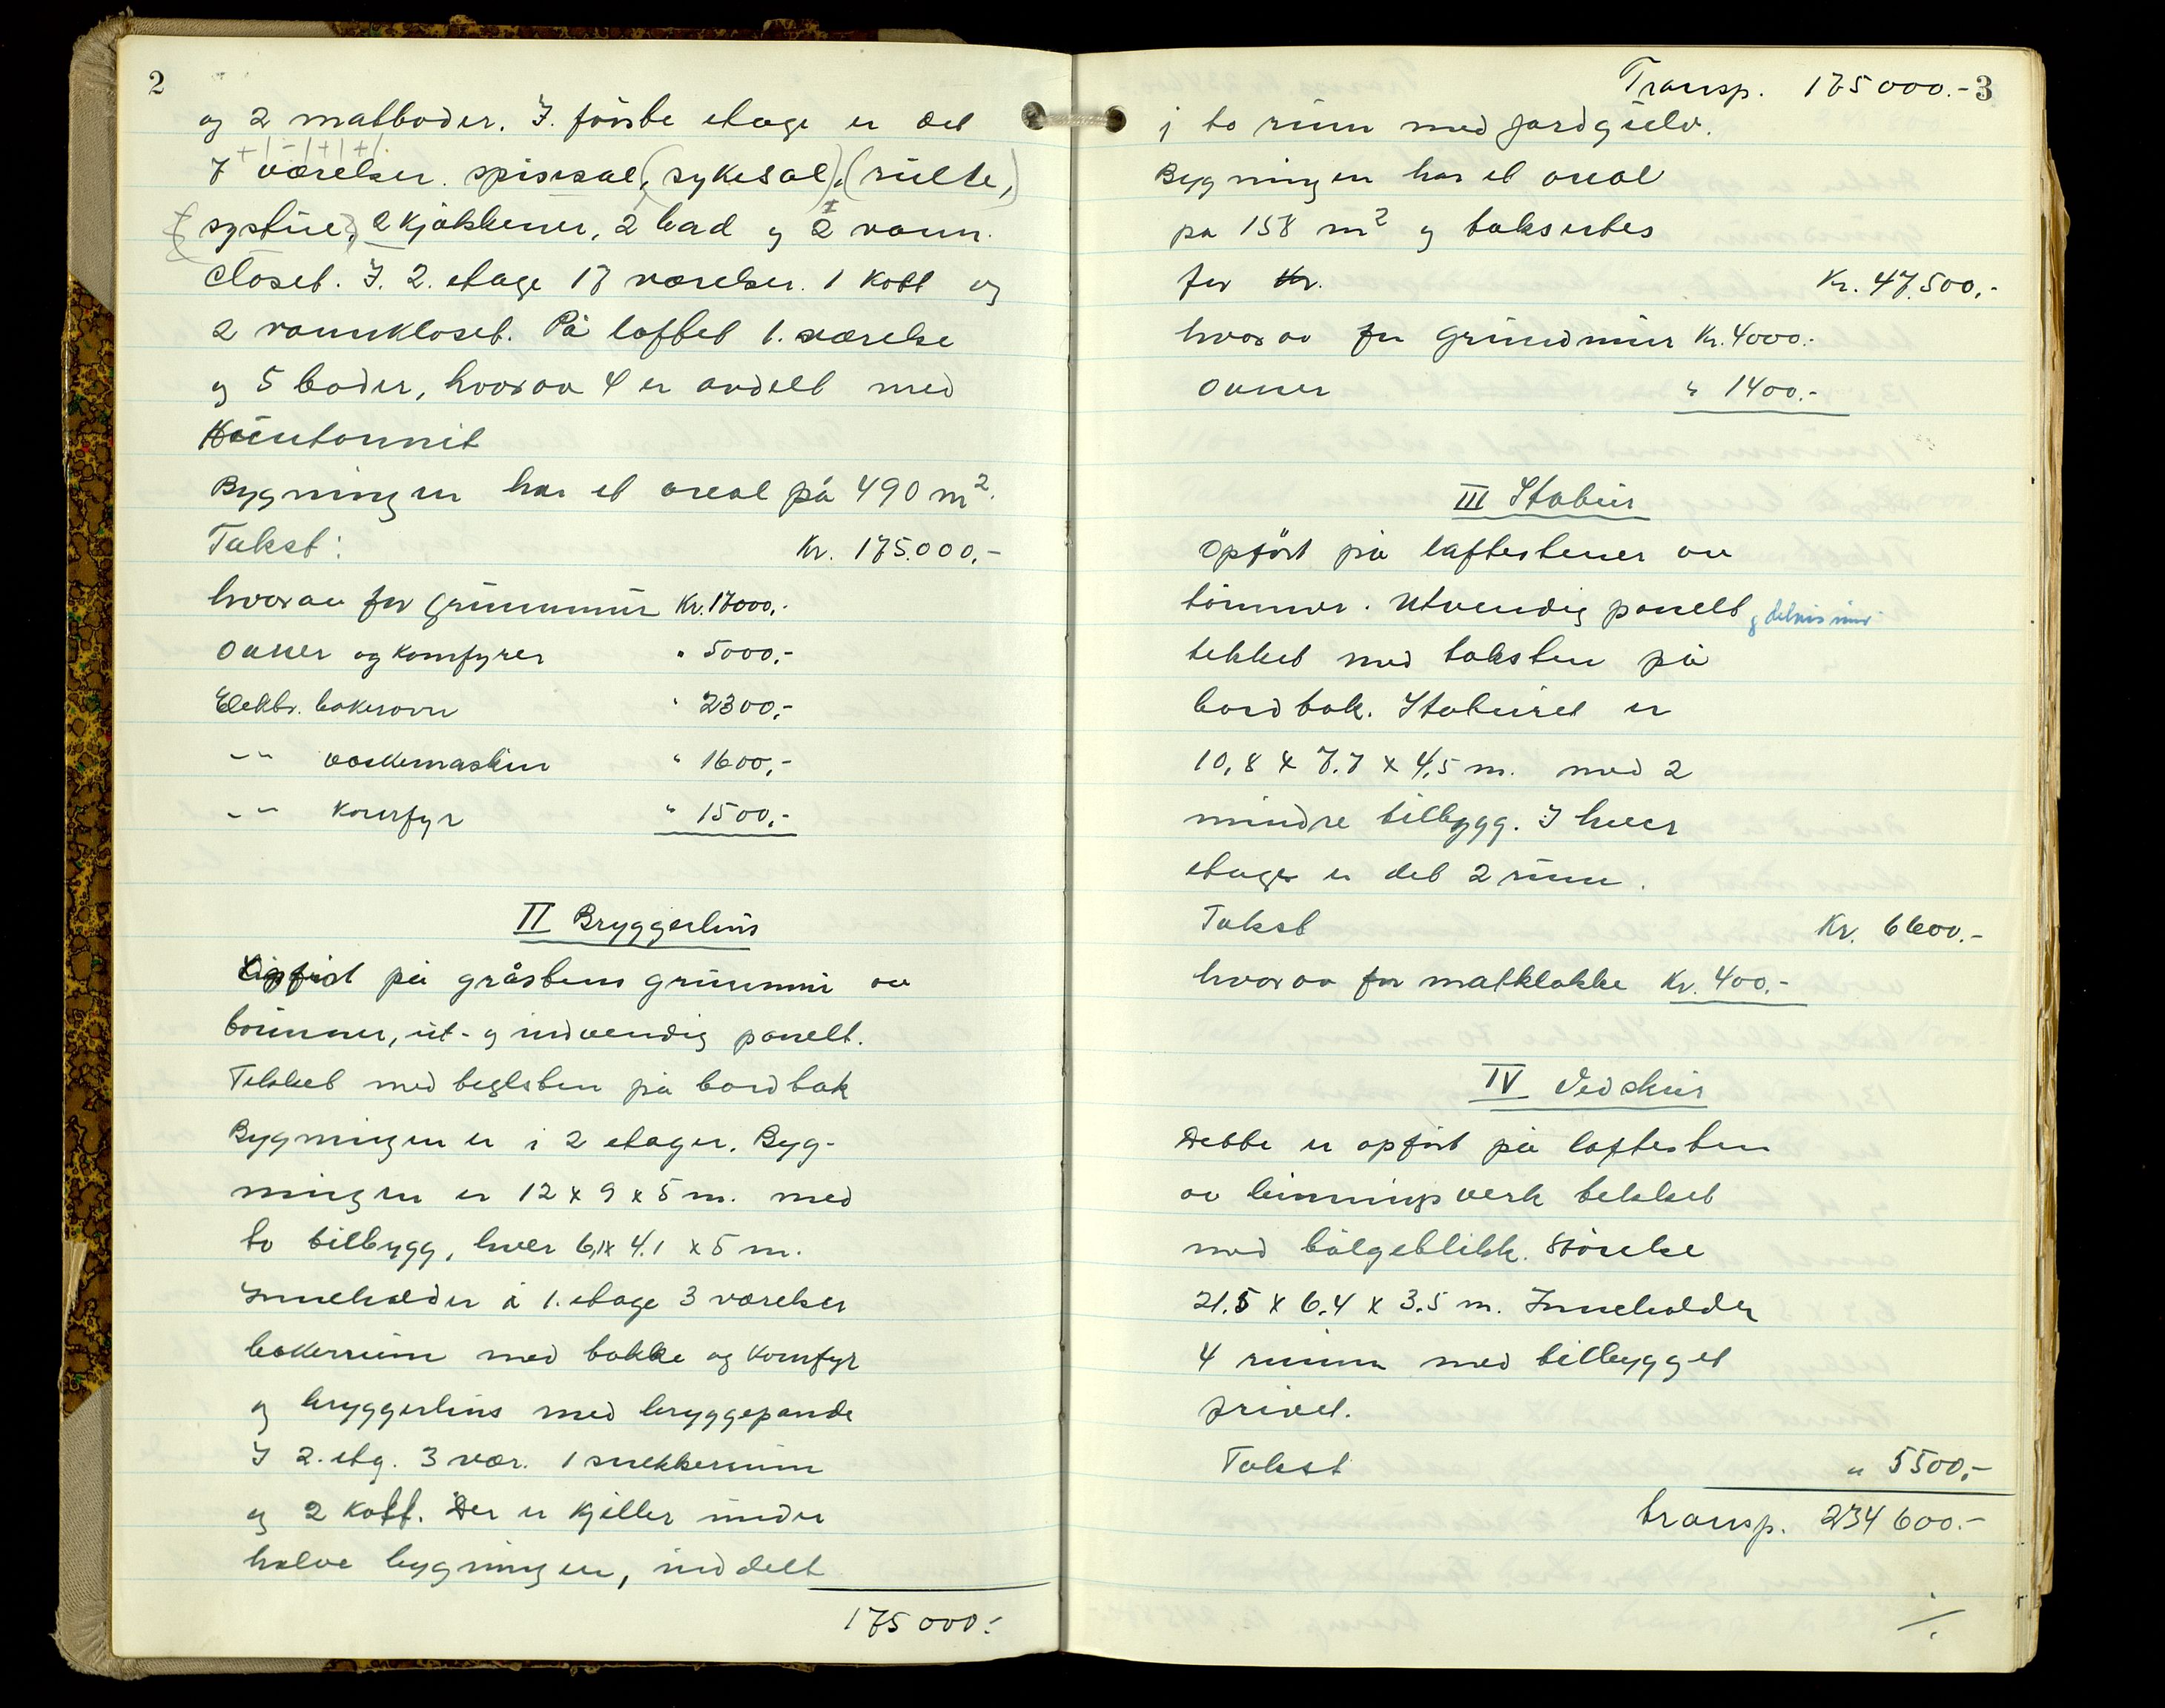 2
og 2 matboder. I. förste etage er det
+ | - | + | + |
7 værelser. spisesal, (sykesal), (rulle,)
systue, 2 kjøkkener, 2 bad og 2 vann.
closet. I. 2. etage 17 værelser. 1 kott og
2 vannkloset. På loftet 1. værelse
og 5 boder, hvorav 4 er avdelt med
Bygningen har et areal på 490 m².
Takst: Kr. 175.000,-
hvorav for grunnmur Kr. 17000,-
Ovner og komfyrer " 5000,-
Elektr. bakerovn " 2300,-
-"- vaskemaskin " 1600,-
-"- komfyr " 1500,-
II Bryggerhus
Opført på gråstens grunnmur av
tömmer, ut- og indvendig panelt.
Tekket med teglsten på bordtak
Bygningen er i 2 etager. Byg-
ningen er 12 x 9 x 5 m. med
to tilbygg, hver 6,1 x 4.1 x 5 m.
Inneholder i 1. etage 3 værelser
bakerrum med takke og komfyr
og bryggerhus med bryggepande
I 2. etg. 3 vær. 1 snekkerrum
og 2 kott. Der er kjeller under
halve bygningen, inddelt
175 000.-
3
Transp. 175 000.-
i to rum med jordgulv.
Bygningen har et areal
på 158 m² og takseres
for Kr. Kr. 47.500,-
hvorav for grundmur Kr. 4000.-
Ovner " 1400.-
III Stabur
Opført på laftestener av
tömmer. Utvendig panelt og delvis inv.
tekket med taksten på
bordtak. Staburet er
10,8 x 7.7 x 4,5 m. med 2
mindre tilbygg. I hver
etage er det 2 rum.
Takst Kr. 6600.-
hvorav for matklokke Kr. 400.-
IV Vedskur
Dette er opført på laftesten
av binningsverk tekket
med bölgeblikk. Störelse
21.5 x 6.4 x 3.5 m. Inneholder
4 rumm med tilbygget
privet.
Takst " 5500,-
transp. 234 600.-
./.